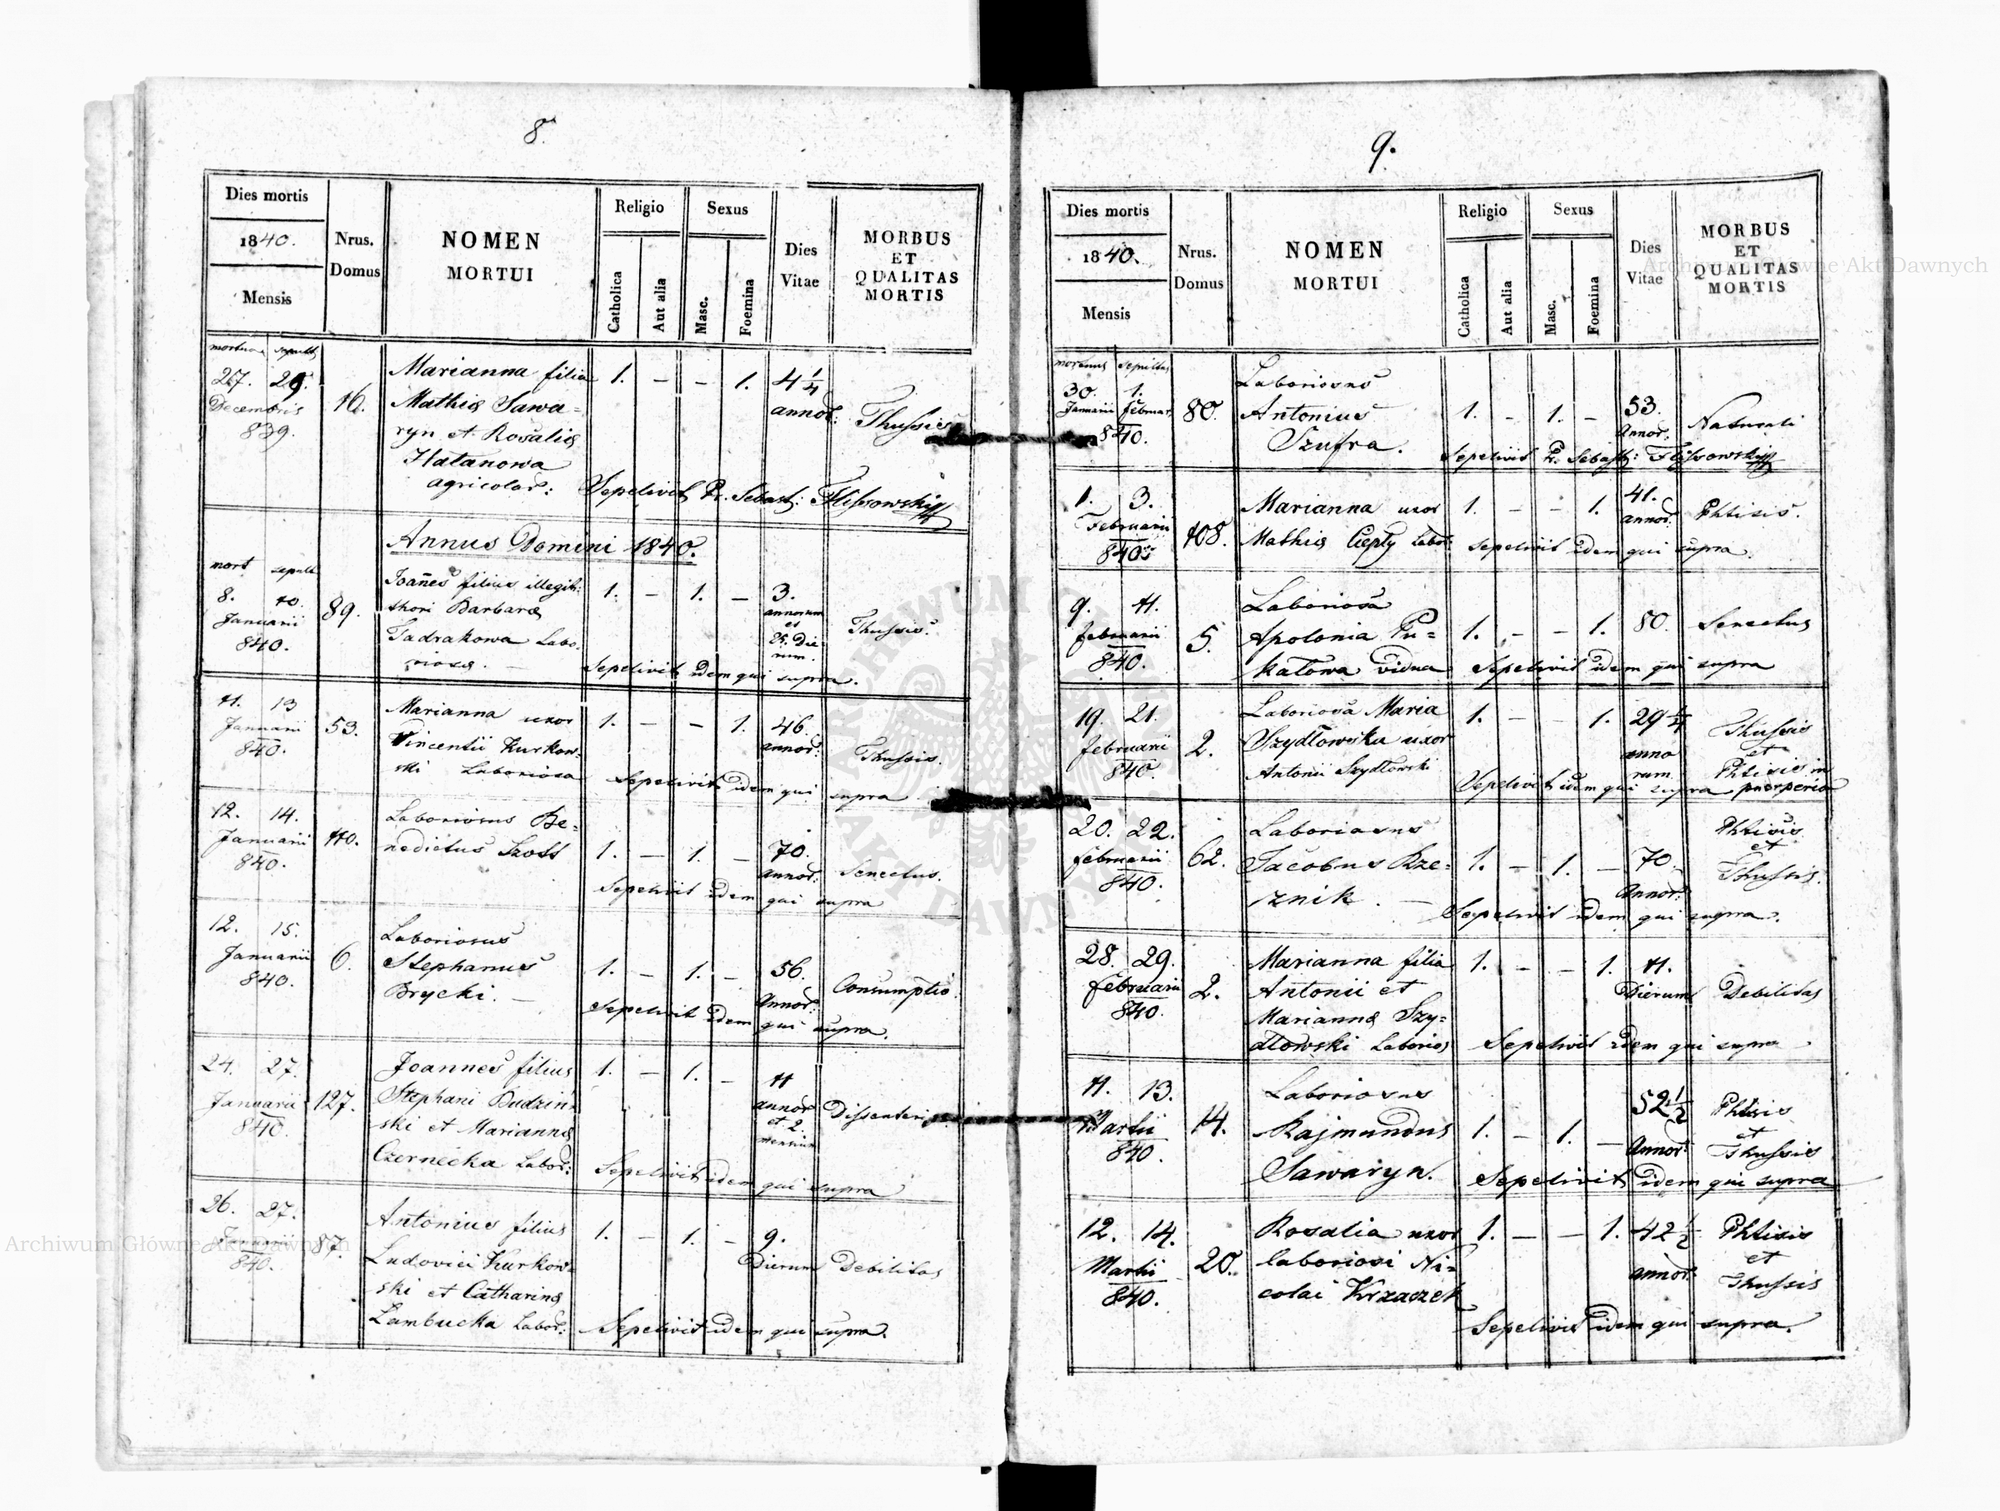 8.
Dies mortis
1840.
Mensis
Nrus.
Domus
NOMEN
MORTUI
Religio
Catholica
Aut alia
Sexus
Masc.
Foemina
Dies
Vitae
MORBUS
ET
QUALITAS
MORTIS
mortua sepult
27. 29.
Decembris
839.
16.
Marianna filia
Mathiæ Sawa=
ryn et Rosaliæ
agricolar:
1. — — 1.
4 1/4
annor:
Thussis
Sepelivit Pr. Sebast: Flissowski
Annus Domini 1840.
mort sepult
8. 10.
Januarii
840.
89.
Joañes filius illegit:
thori Barbaræ
Labo:
riosæ. —
1. — 1. —
3.
annorum
et
25. Die
rum.
Thussis.
Sepelivit idem qui supra.
11. 13
Januarii
840.
53.
Marianna uxor
Vincentii Kurkow=
ski Laboriosa
1. — — 1.
46.
annor:
Thussis.
Sepelivit idem qui supra
12. 14.
Januarii
840.
110.
Laboriosus Be=
nedictus Szost
1. — 1. —
70.
annor:
Senectus.
Sepelivit idem qui supra
12. 15.
Januarii
840.
6.
Laboriosus
Stephanus
Brycki. —
1. — 1. —
56.
Annor:
Consumptio.
Sepelivit idem qui supra.
24. 27.
Januarii
840.
127.
Joannes filius
Stephani Budzin=
ski et Mariannæ
Czernecka Labor:
1. — 1. —
11
annor
et 2.
mensium
Sepelivit idem qui supra
26. 27.
Januarii
840.
87.
Antonius filius
Ludovici Kurkow=
ski et Catharinæ
Lambucka Labor:
1. — 1. —
9.
Dierum
Debilitas
Sepelivit idem qui supra.
9.
Dies mortis
1840.
Mensis
Nrus.
Domus
NOMEN
MORTUI
Religio
Catholica
Aut alia
Sexus
Masc.
Foemina
Dies
Vitae
MORBUS
ET
QUALITAS
MORTIS
mortuus sepultus
30. 1.
Januarii Februar.
840.
80.
Laboriosus
Antonius
Szufra.
1. — 1. —
53.
Annor.
Naturali
Sepelivit Pr. Sebast: Flissowski
1. 3.
Februarii
840
108.
Marianna uxor
Mathiæ Ciepły Labor:
1. — — 1.
41.
annor.
Phtisis.
Sepelivit idem qui supra.
9. 11.
Februarii
840.
5.
Laboriosa
Apolonia Pu=
katowa vidua
1. — — 1.
80.
Senectus
Sepelivit idem qui supra
19. 21.
februarii
840.
2.
Laboriosa Maria
Szydłowska uxor
Antonii Szydłowski
1. — — 1.
29 1/4
anno
rum.
Thussis
et
Phtisis in
puerperio
Sepelivit idem qui supra
20. 22.
februarii
840.
62.
Laboriosus
Jacobus Rze=
znik. —
1. — 1. —
70.
Annor:
Phtisis
et
Thussis.
Sepelivit idem qui supra.
28. 29.
februarii
840.
2.
Marianna filia
Antonii et
Mariannæ Szy=
dłowski Laborios
1. — — 1.
11.
Dierum
Debilitas
Sepelivit idem qui supra
11. 13.
Martii
840.
14.
Laboriosus
Rajmundus
Sawaryn.
1. — 1. —
52 1/2
Annor:
Phtisis
et
Thussis
Sepelivit idem qui supra
12. 14.
Martii
840.
20.
Rosalia uxor
laboriosi Ni=
colai Krzaczek
1. — — 1.
42 1/2
annor:
Phtisis
et
Thussis
Sepelivit idem qui supra.
Archiwum Główne Akt Dawnych
Archiwum Główne Akt Dawnych
ARCHIWUM GŁÓWNE
AKT DAWNYCH